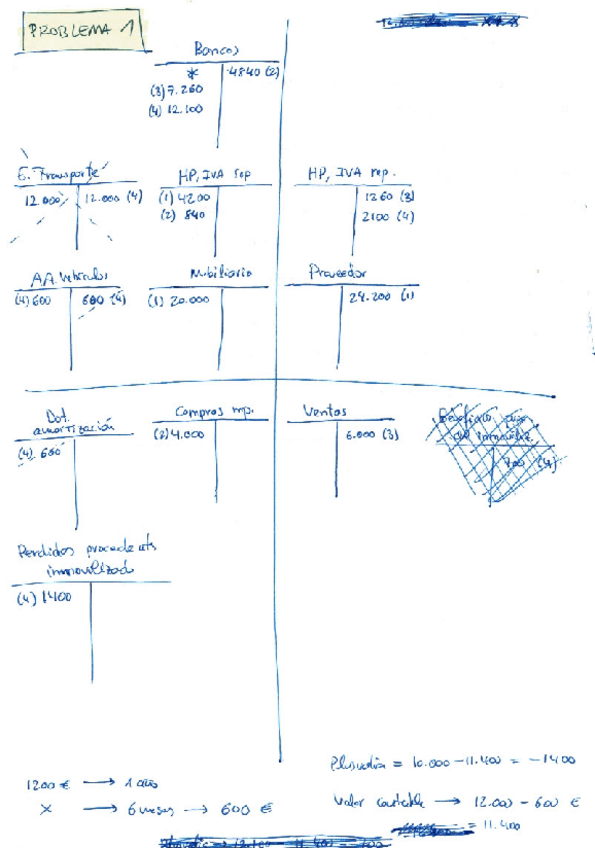 PROBLEMA 1
Bancos
* 4840 (2)
(3) 7.260
(4) 12.100
E. Transporte
12.000 12.000 (4)
HP, IVA sop
(1) 4200
(2) 840
HP, IVA rep.
1260 (3)
2100 (4)
A.A. Vehículos
(4) 600 600 (4)
Mobiliario
(1) 20.000
Proveedor
24.200 (1)
Dot.
amortización
(4) 600
Compras mp.
(2) 4.000
Ventas
6.000 (3)
700 (4)
Perdidas procedents
inmovilizad
(4) 1400
1200 € → 1 año
X → 6 meses → 600 €
Plusvalía = 10.000 - 11.400 = -1400
Valor contable → 12.000 - 600 €
= 11.400